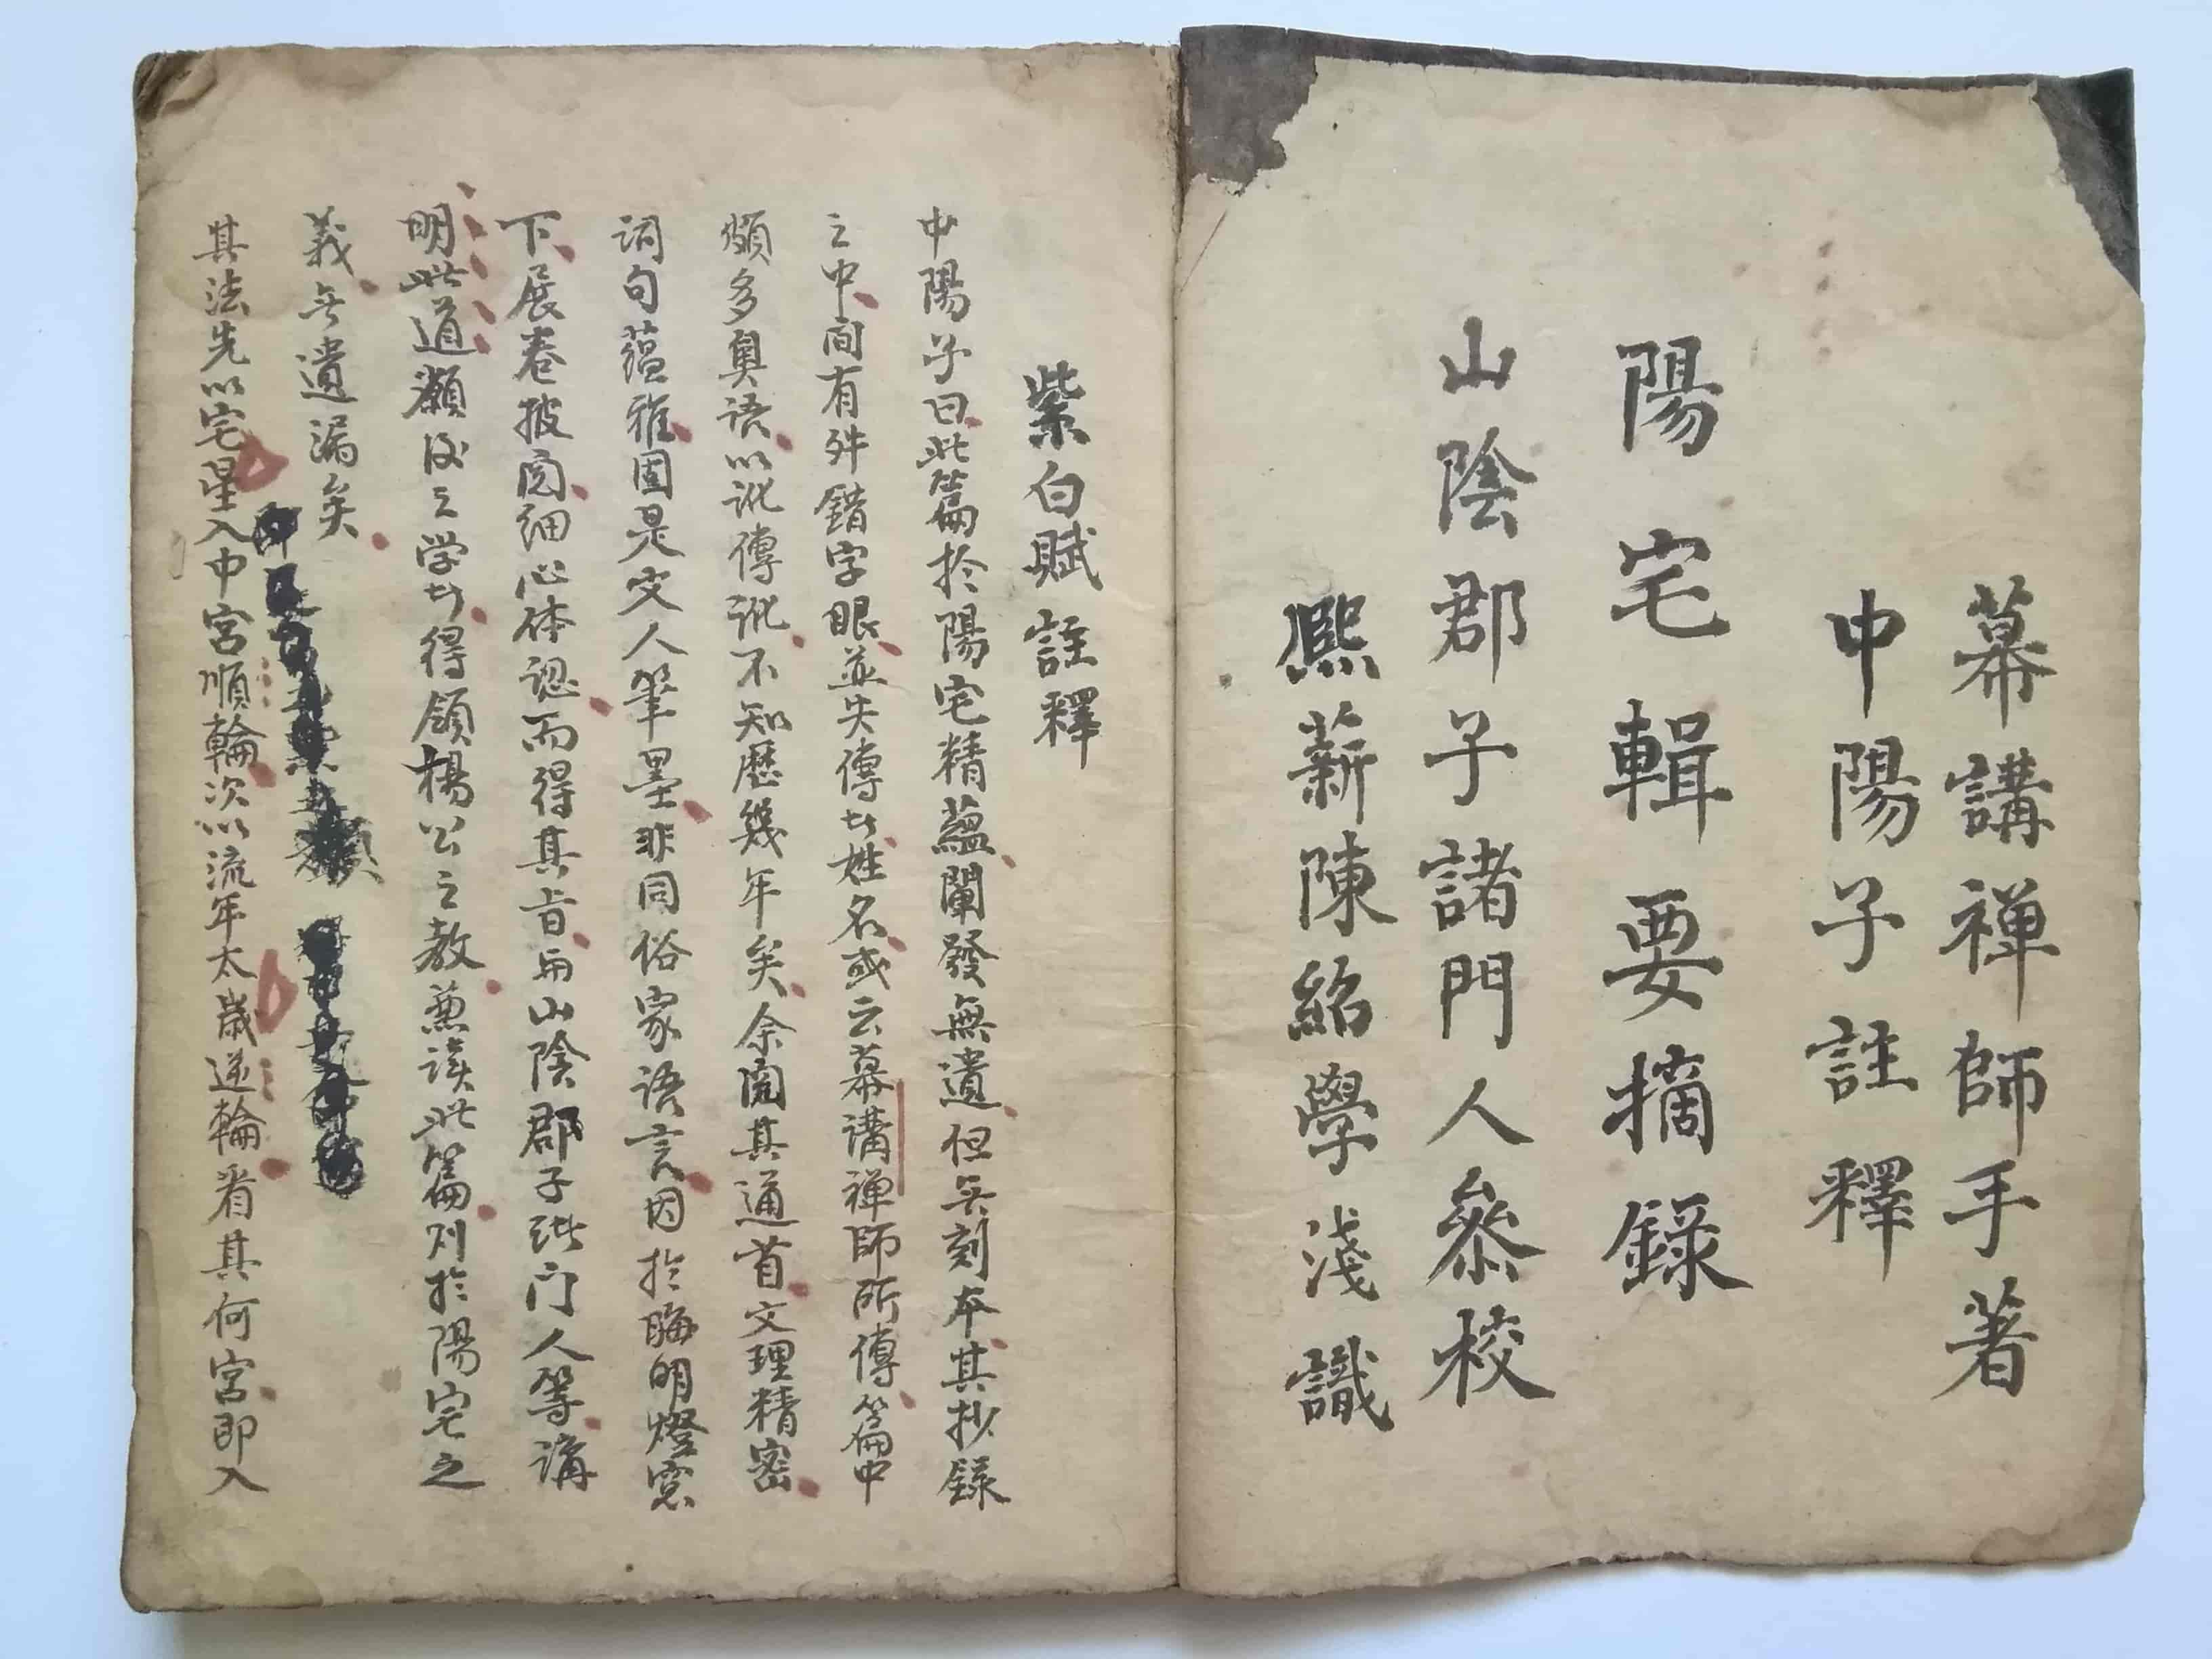 幕講禅師手著
中陽子註釋
陽宅輯要摘錄
山陰郡子諸門人叅校
熈薪陳紹學淺識
紫白賦註釋
中陽子曰此篇於陽宅精蘊闡發無遺但无刻本其抄錄
之中间有舛錯字眼並失傳姓名或云幕講禅師所傳篇中
頗多奥语以訛傳訛不知歷幾年矣余阅其通首文理精密
词句蕴雅固是文人筆墨非同俗家语言因於晦明燈窓
下展卷披阅细心体認而得其旨與山陰郡子諸门人等講
明此道願後之学者得領楊公之教兼读此篇则於陽宅之
義无遺漏矣
其法先以宅星入中宮順輪次以流年太歲逆輪看其何宮即入